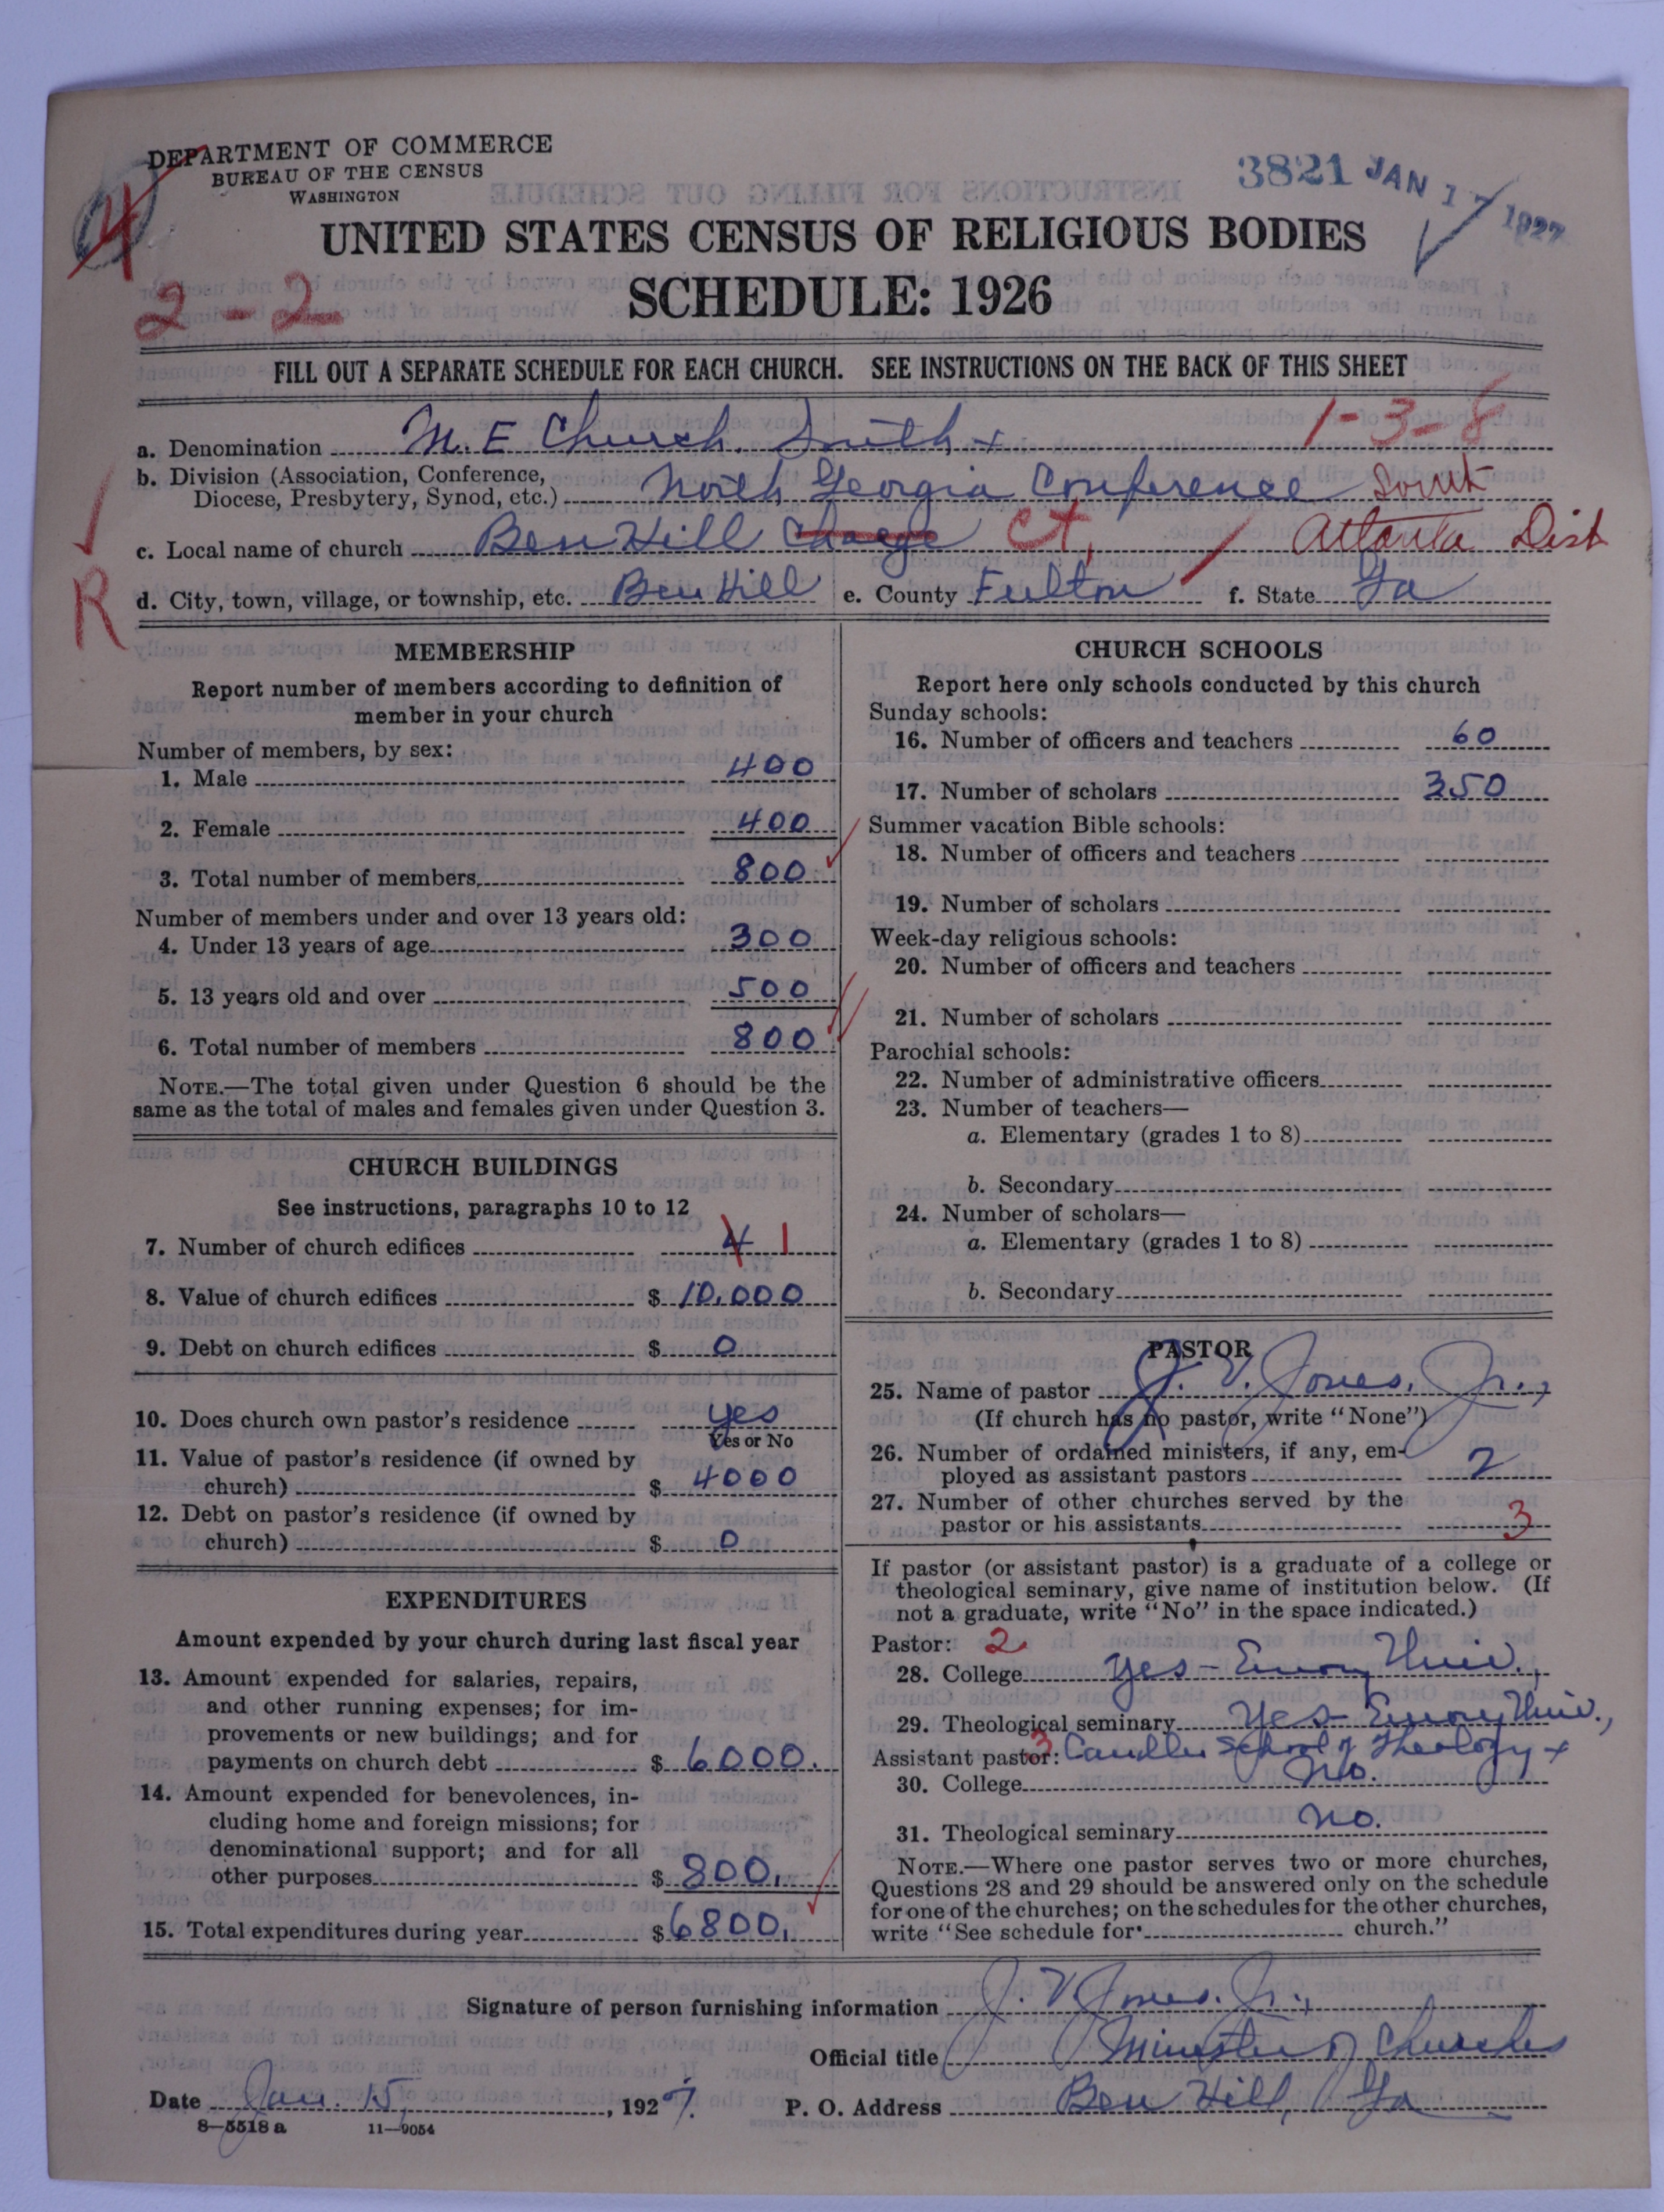 DEPARTMENT OF COMMERCE
BUREAU OF THE CENSUS
WASHINGTON
3821 JAN 17 1927
4
2-2
UNITED STATES CENSUS OF RELIGIOUS BODIES
SCHEDULE: 1926
FILL OUT A SEPARATE SCHEDULE FOR EACH CHURCH. SEE INSTRUCTIONS ON THE BACK OF THIS SHEET
1-3-8
a. Denomination M.E Church, South
b. Division (Association, Conference,
Diocese, Presbytery, Synod, etc.) North Georgia Conference South
c. Local name of church Ben Hill Charge Ct, Atlanta Dist
R
d. City, town, village, or township, etc. Ben Hill e. County Fulton f. State Ga
MEMBERSHIP
Report number of members according to definition of
member in your church
Number of members, by sex:
1. Male 400
2. Female 400
3. Total number of members, 800
Number of members under and over 13 years old:
4. Under 13 years of age 300
5. 13 years old and over 500
6. Total number of members 800
NOTE.—The total given under Question 6 should be the
same as the total of males and females given under Question 3.
CHURCH BUILDINGS
See instructions, paragraphs 10 to 12
7. Number of church edifices 4 1
8. Value of church edifices $ 10,000
9. Debt on church edifices $ 0
10. Does church own pastor's residence yes
Yes or No
11. Value of pastor's residence (if owned by
church) $ 4000
12. Debt on pastor's residence (if owned by
church) $ 0
EXPENDITURES
Amount expended by your church during last fiscal year
13. Amount expended for salaries, repairs,
and other running expenses; for im-
provements or new buildings; and for
payments on church debt $ 6000.
14. Amount expended for benevolences, in-
cluding home and foreign missions; for
denominational support; and for all
other purposes $ 800.
15. Total expenditures during year $ 6800.
CHURCH SCHOOLS
Report here only schools conducted by this church
Sunday schools:
16. Number of officers and teachers 60
17. Number of scholars 350
Summer vacation Bible schools:
18. Number of officers and teachers
19. Number of scholars
Week-day religious schools:
20. Number of officers and teachers
21. Number of scholars
Parochial schools:
22. Number of administrative officers
23. Number of teachers—
a. Elementary (grades 1 to 8)
b. Secondary
24. Number of scholars—
a. Elementary (grades 1 to 8)
b. Secondary
PASTOR
25. Name of pastor J. V. Jones, Jr.,
(If church has no pastor, write "None")
26. Number of ordained ministers, if any, em-
ployed as assistant pastors 2
27. Number of other churches served by the
pastor or his assistants 3
If pastor (or assistant pastor) is a graduate of a college or
theological seminary, give name of institution below. (If
not a graduate, write "No" in the space indicated.)
Pastor: 2
28. College Yes - Emory Univ.,
29. Theological seminary Yes - Emory Univ.,
Assistant pastor: 3 Candler School of Theology
30. College No.
31. Theological seminary No.
NOTE.—Where one pastor serves two or more churches,
Questions 28 and 29 should be answered only on the schedule
for one of the churches; on the schedules for the other churches,
write "See schedule for church."
Signature of person furnishing information J. V. Jones, Jr.,
Official title Minister of Churches
Date Jan. 15, 1927. P. O. Address Ben Hill, Ga
8—5518 a 11—9054